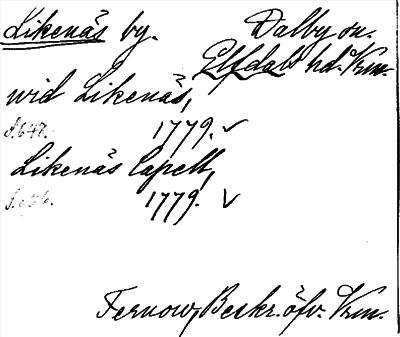 Likenäs by. Dalby sn.
Elfdals hd. Vrm.
wid Likenäs,
s. 648. 1779. ✓
Likenäs Capell,
1779. ✓
Fernow, Beskr. öfv. Vrm.